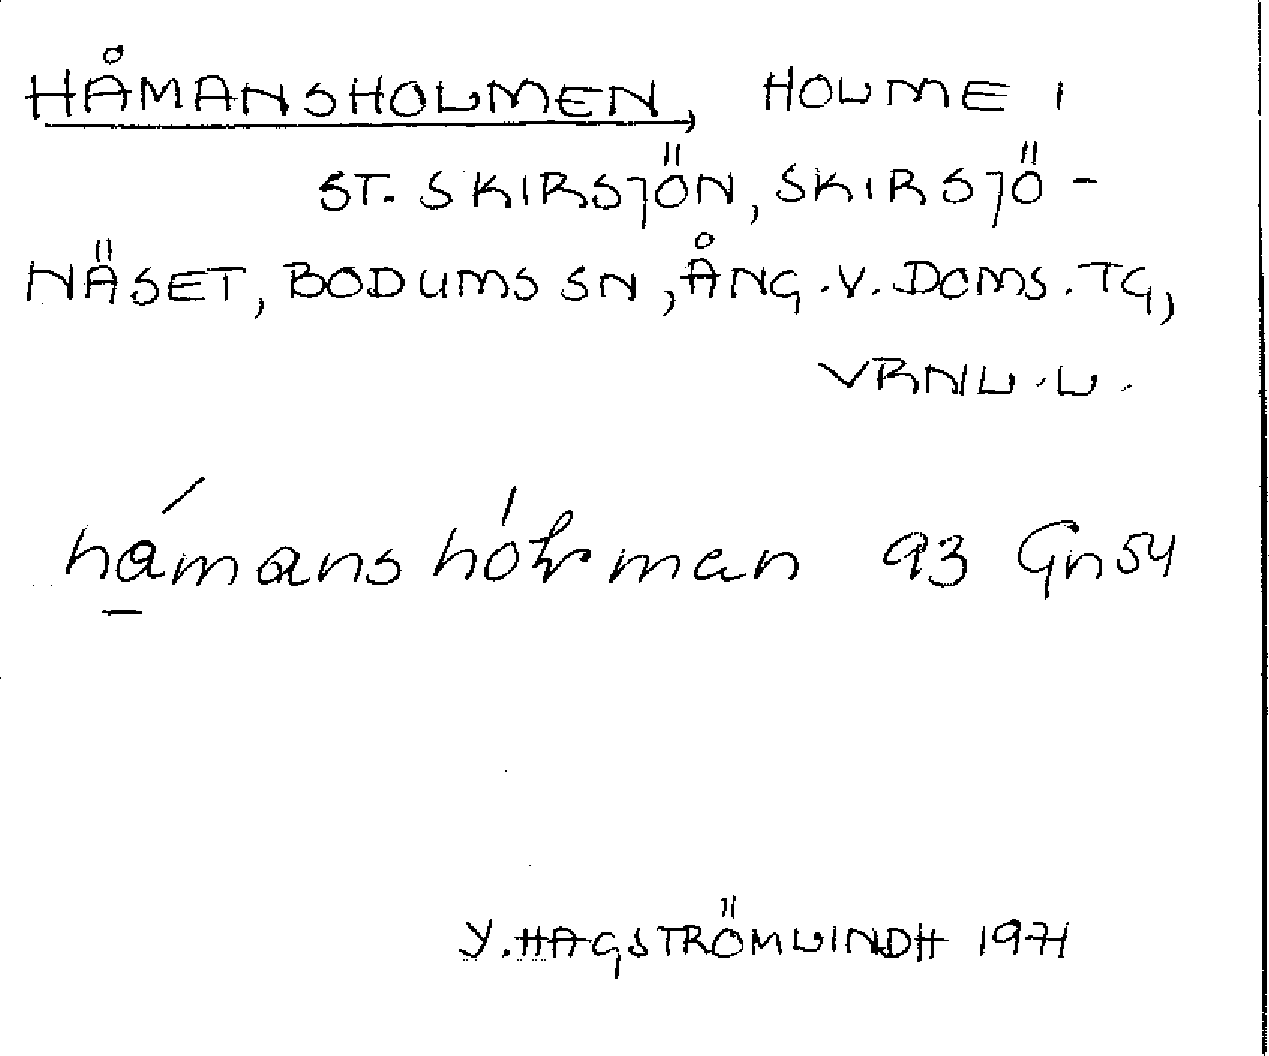 HÅMANSHOLMEN, HOLME I
ST. SKIRSJÖN, SKIRSJÖ-
NÄSET, BODUMS SN, ÅNG.V.DOMS.TG,
VRNL.L.
håmans hóɫmen 93 Gn54
Y. HAGSTRÖMLINDH 1971